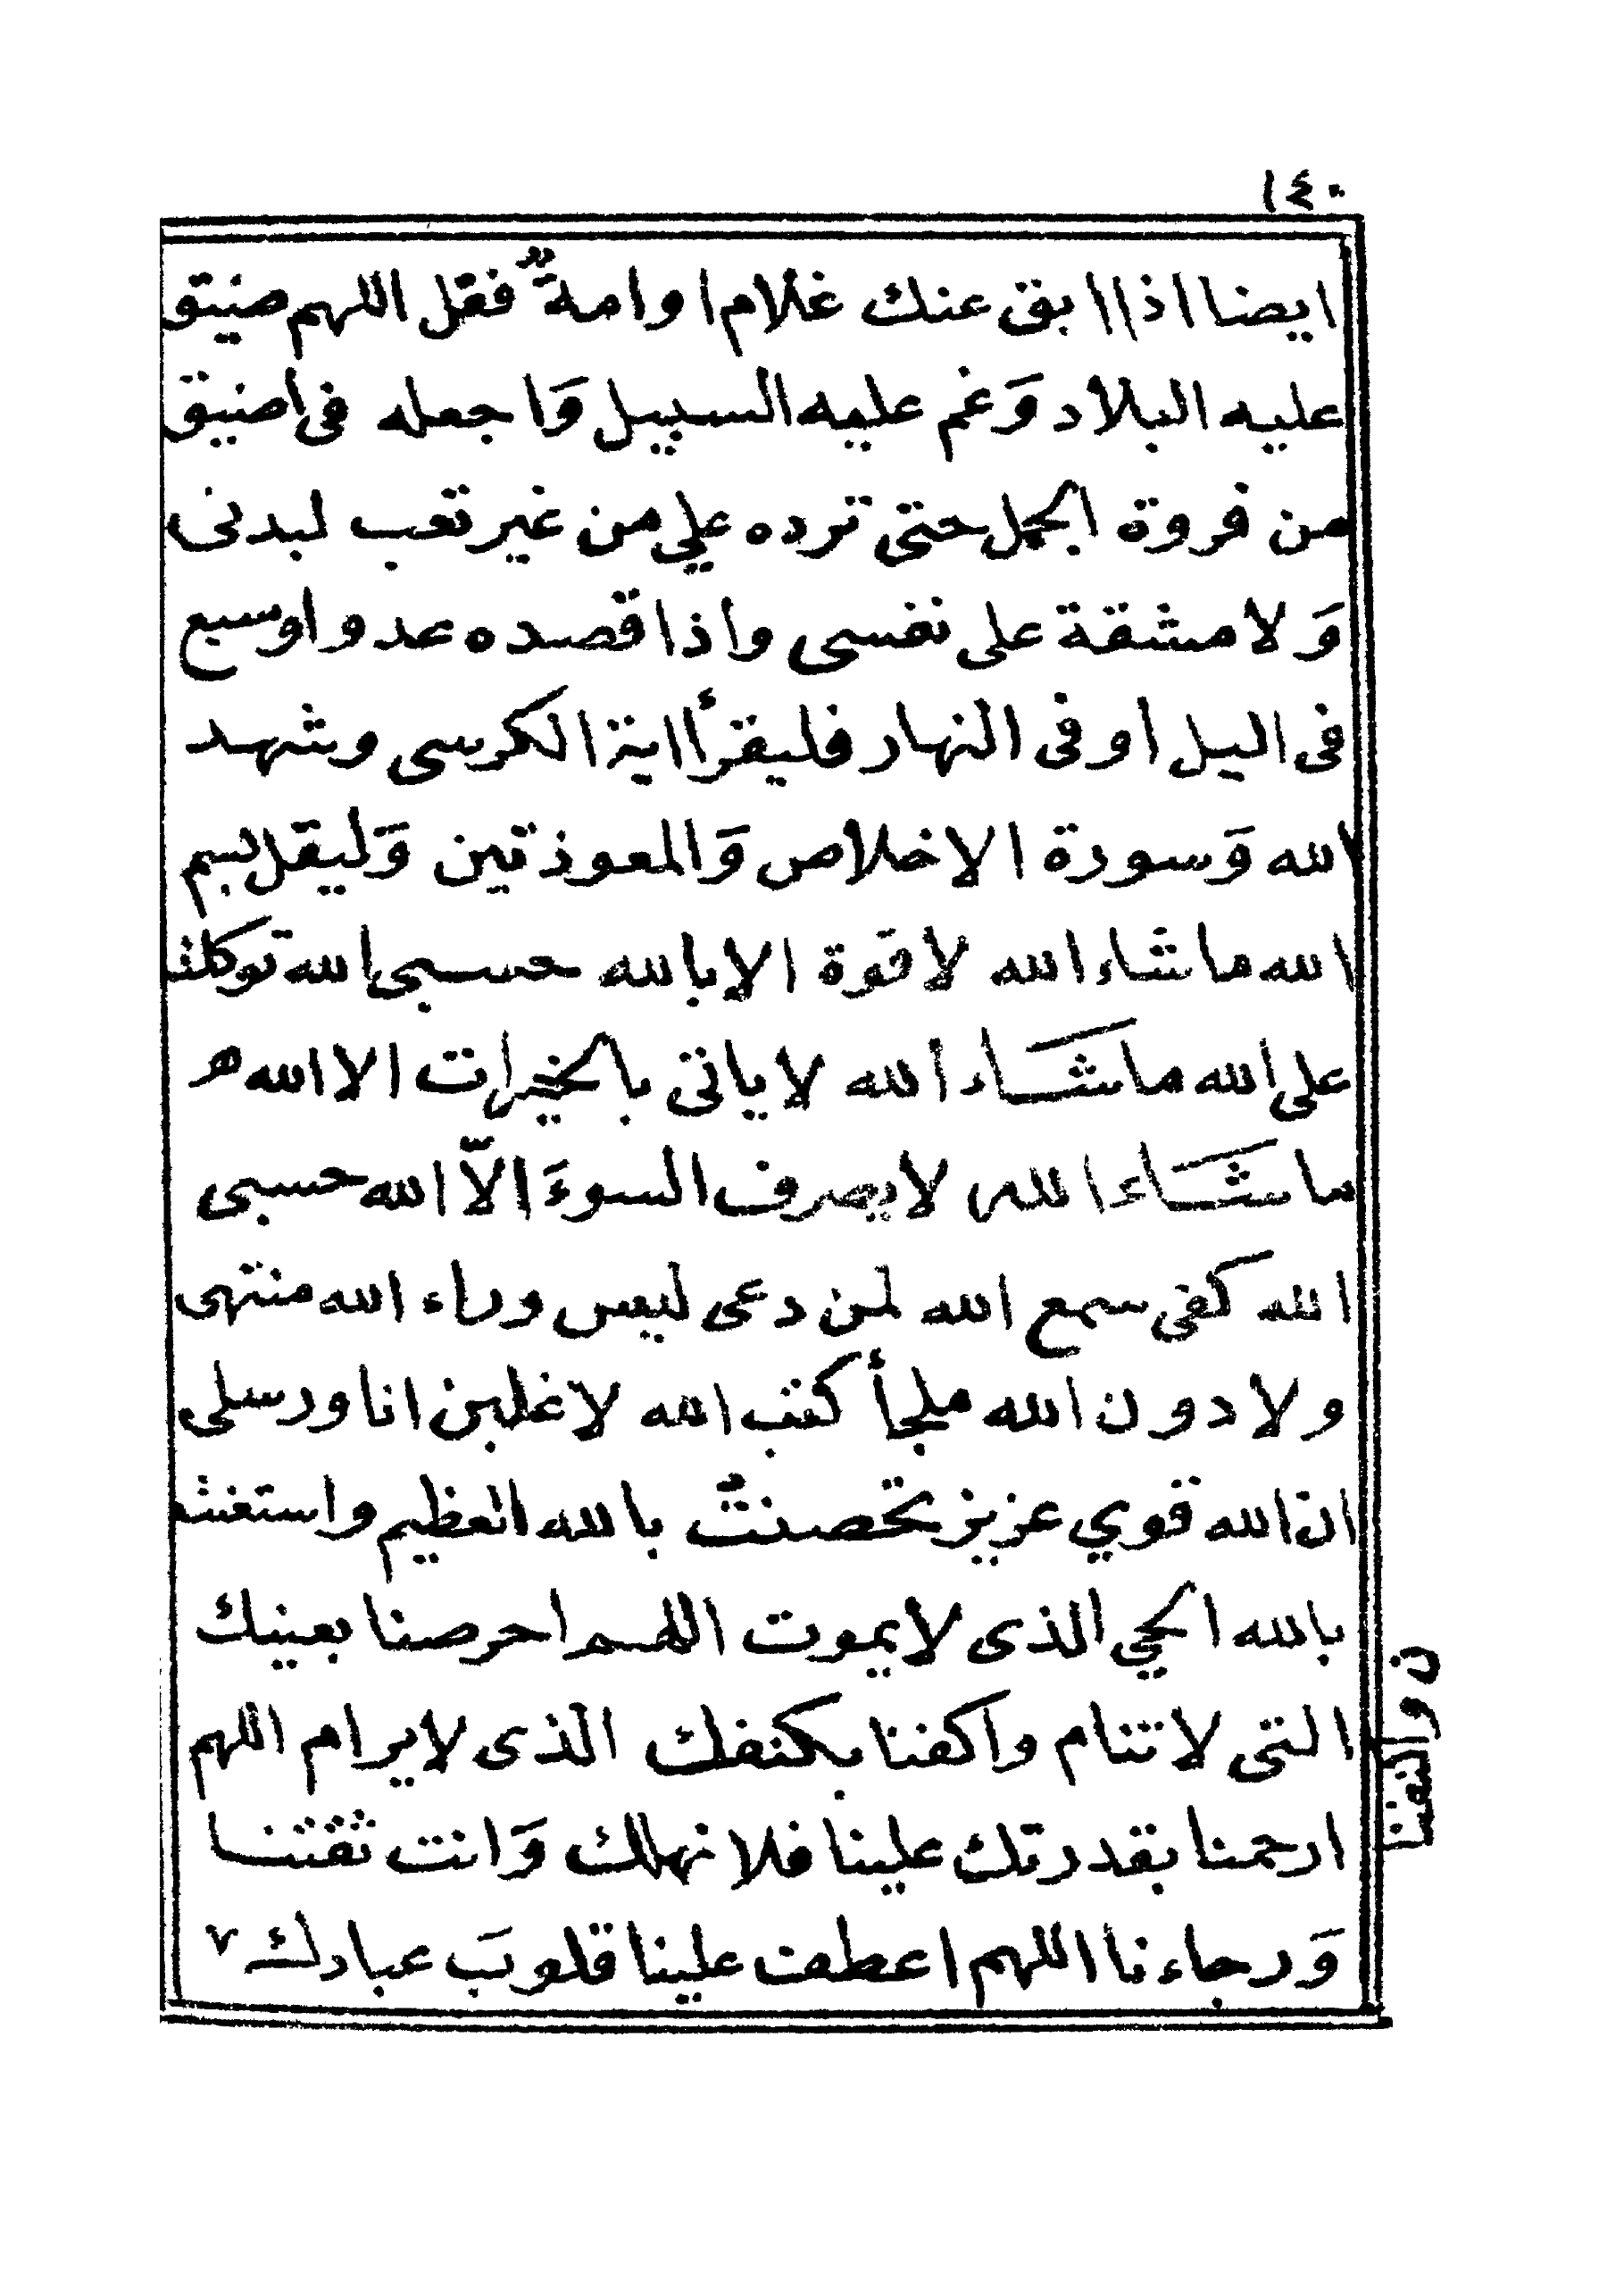 ١٤٠
ايضا اذا ابق عنك غلام اوامةٌ فقل اللهم ضيق
عليه البلاد وَغم عليه السبيل وَاجعله فى اضيق
من فروة الجمل حتى ترده علي من غير تعب لبدنى
وَلا مشقة على نفسى واذا قصده عدو اوسبع
فى اليل اوفى النهار فليقرأ اية الكرسى وشهد
الله وَسورة الاخلاص وَالمعوذتين وَليقل بسم
الله ماشاء الله لاقوة الابالله حسبى الله توكلت
على الله ماشاء الله لاياتى بالخيرات الا الله
ماشاء الله لايصرف السوءَ الاّ الله حسبى
الله كفى سمع الله لمن دعى ليس وراء الله منتهى
ولادون الله ملجأ كتب الله لاغلبن انا ورسلى
ان الله قوي عزيز تحصنتُ بالله العظيم واستغثت
بالله الحي الذى لايموت اللهم احرصنا بعينك
التى لاتنام واكفنا بكنفك الذى لايرام اللهم
ارحمنا بقدرتك علينا فلانهلك وَانت ثقتنا
وَرجاءنا اللهم اعطف علينا قلوبَ عبادك ٧